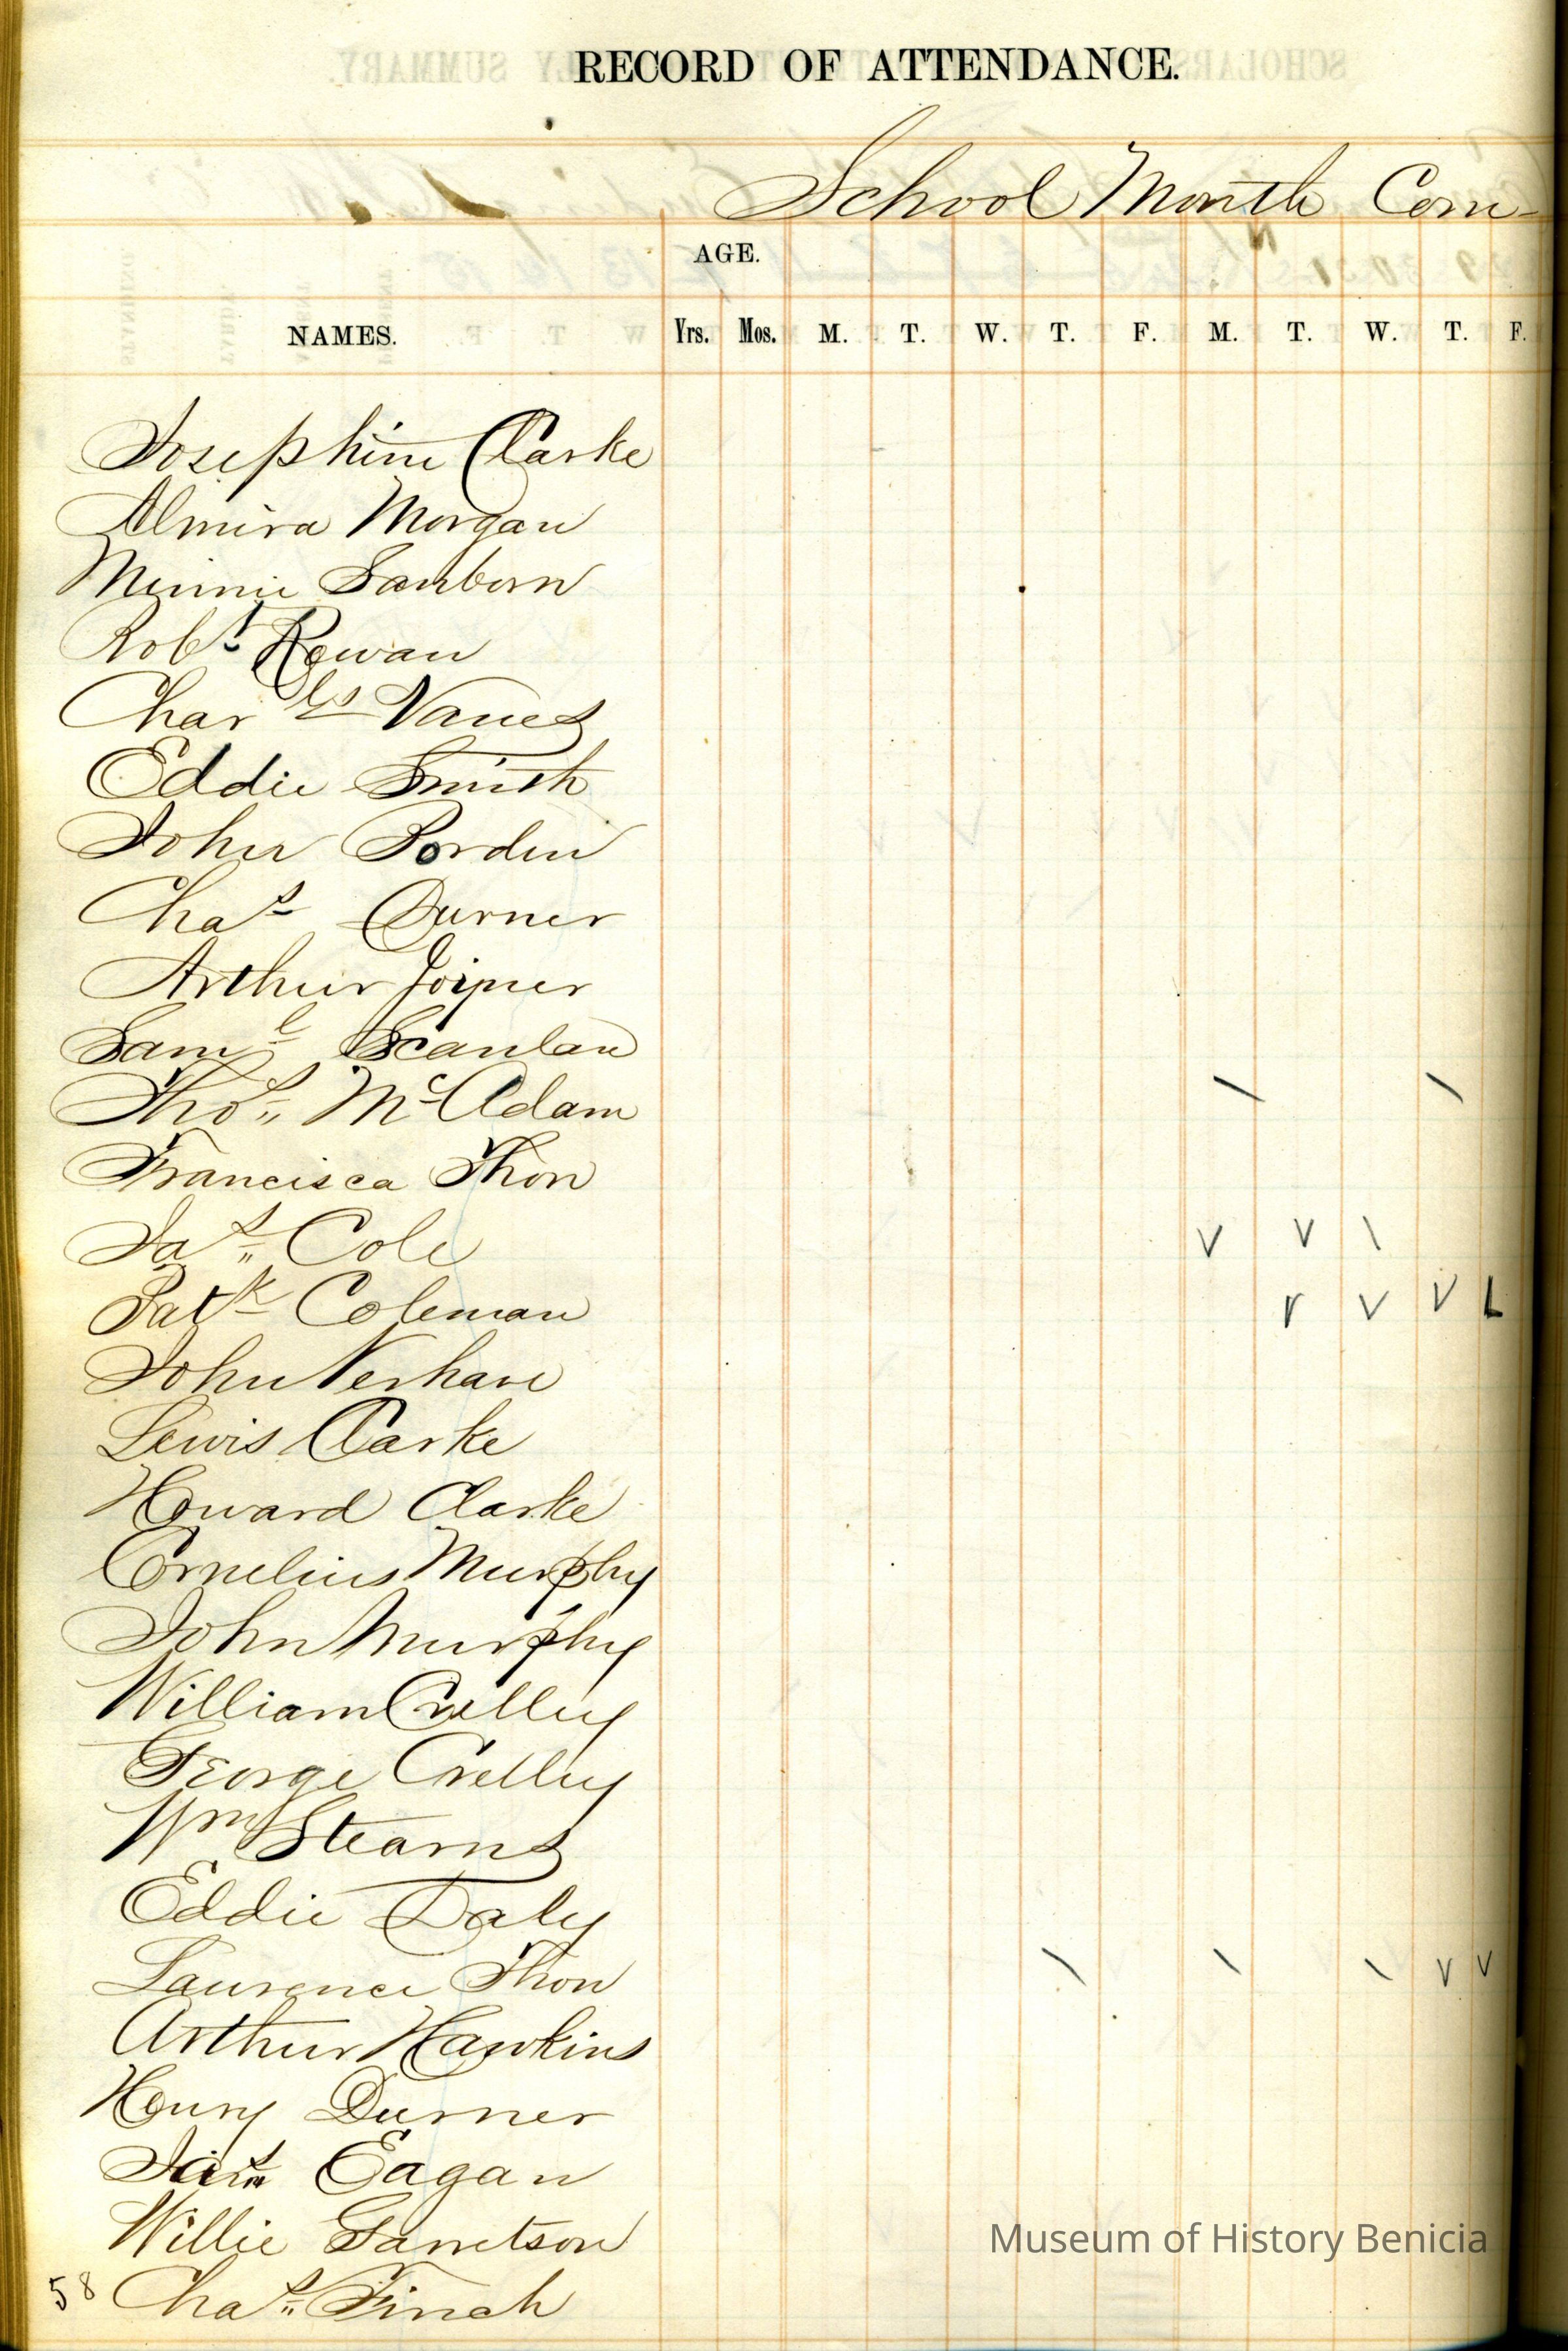 RECORD OF ATTENDANCE.
School Month Com-
AGE.
NAMES. Yrs. Mos. M. T. W. T. F. M. T. W. T. F.
Josephine Clarke
Almira Morgan
Minnie Sanborn
Robt Rowan
Charls
Eddie Smith
John Borden
Chas Durner
Arthur Joyner
Saml Scanlan
Thos McAdam \ \
Francisca Thon
Jas Cole V V \
Patk Coleman r V V L
John
Lewis Clarke
Howard Clarke
Cornelius Murphy
John Murphy
William Crelley
George Crelley
Wm Stearns
Eddie Daly
Laurence Thon \ \ \ V V
Arthur Hawkins
Henry Durner
Jas Eagan
Willie Garretson
58 Chas Finch
Museum of History Benicia